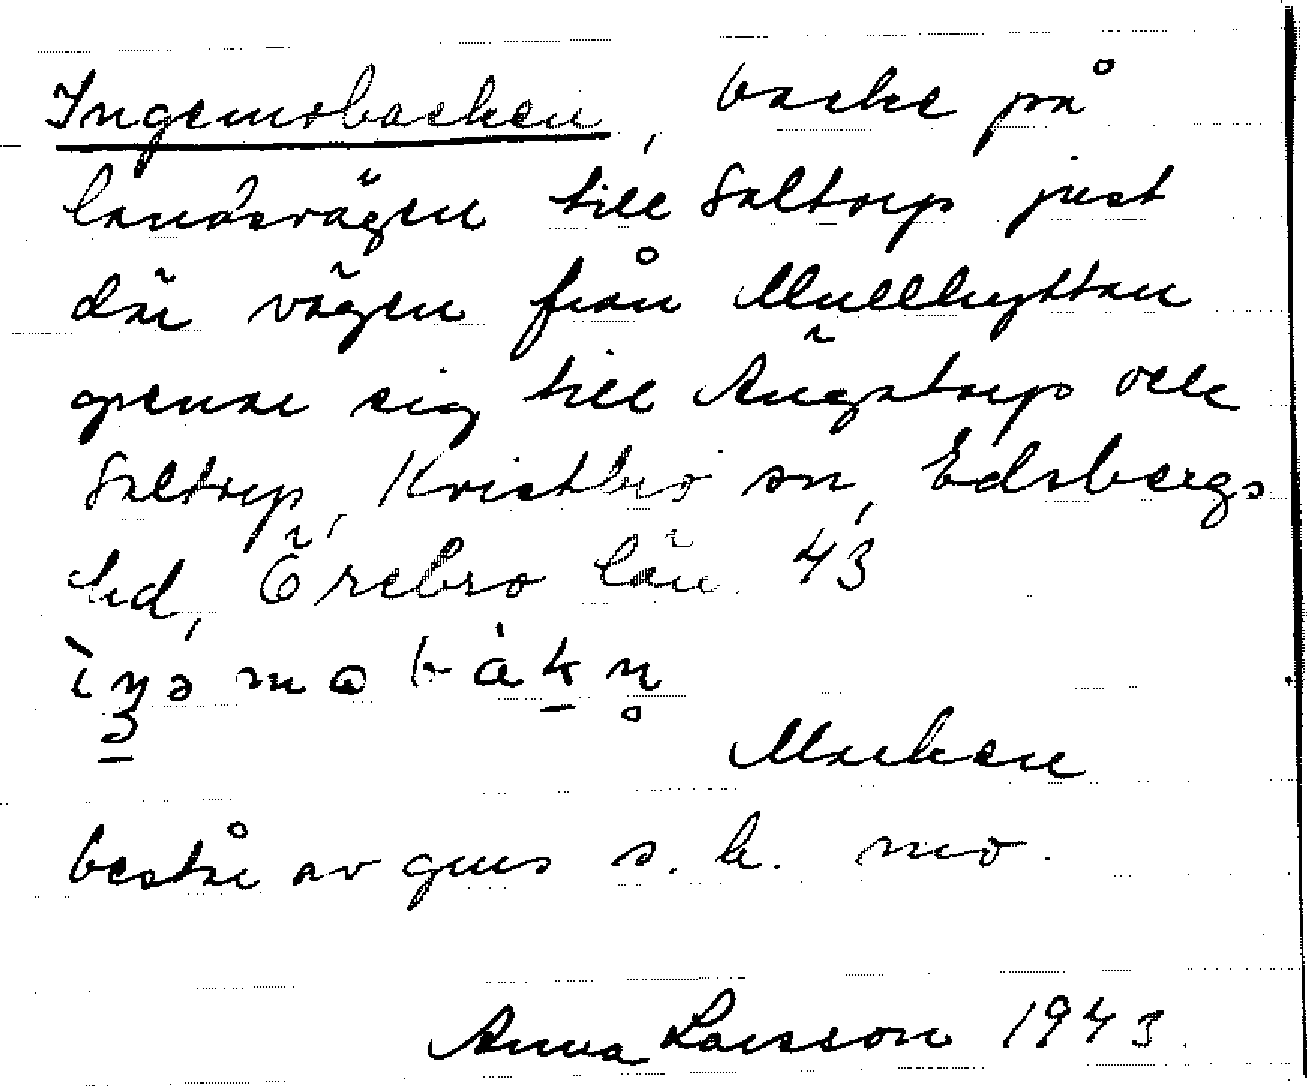 Ingemobacken, backe på
landsvägen till Saltorp just
där vägen från Mullhyttan
grenar sig till Ängatorp och
Saltorp, Kvistbro sn, Edsbergs
hd, Örebro län. 43
Marken
består av grus s. k. mo.
Anna Larsson 1943.